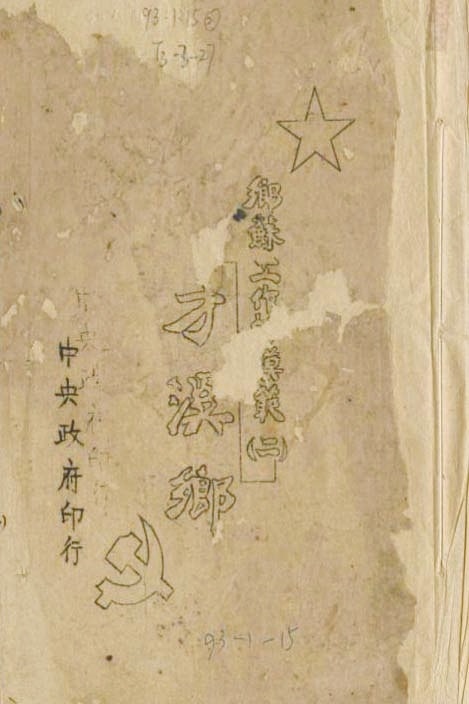 93-1-15
鄉蘇工作模範(二)
才溪鄉
中央政府印行
93-1-15